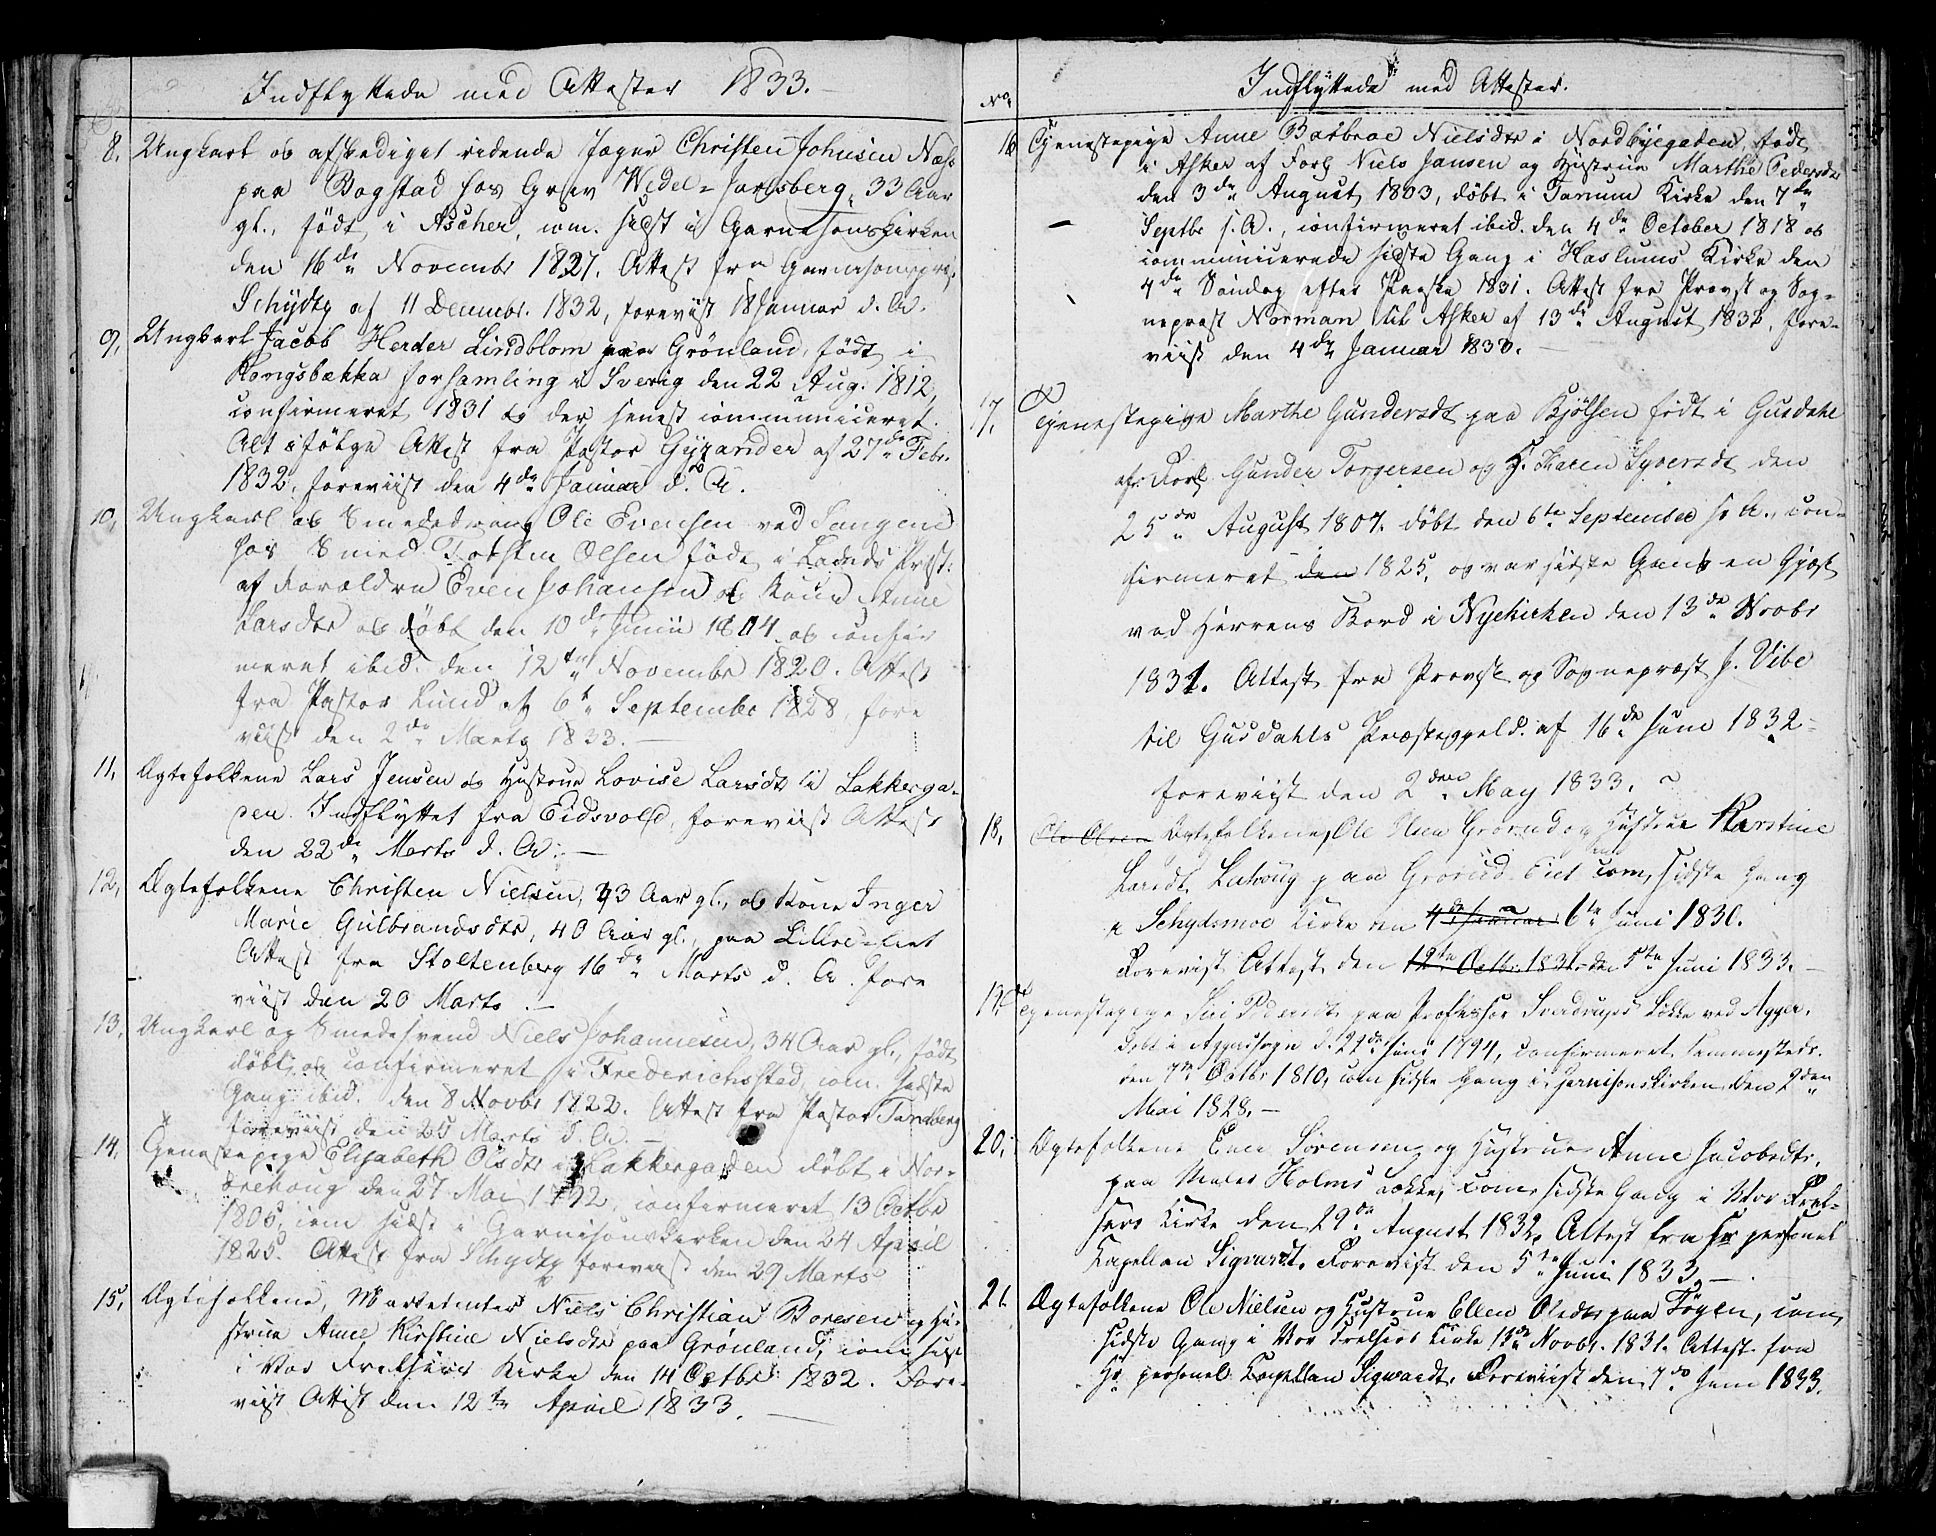 Indflyttede med Attester 1833.
8. Ungkarl og afskediget ridende Jæger Christen Johnsen Næss
paa Bogstad hos Grev Wedel-Jarlsberg, 33 Aar
gl., født i Ascher, com. sidst i Garnisonskirken
den 16de Novembr 1827. Attest fra Garnisonspr.
Schydtz af 11 Decembr. 1832, foreviist 18 Januar d. A.
9. Ungkarl Jacob Herder Lindblom paa Grønland, født i
Kongsbakka Forsamling i Sverig den 22 Aug. 1812,
confirmeret 1831 og der senest communiceret.
Alt ifølge Attest fra Pastor Gyzander af 27de Febr.
1832, foreviist den 4de Januar d. A.
10. Ungkarl og Smededreng Ole Evensen ved Sangene
hos Smed Torsten Olsen født i Præst:
af Forældre Even Johansen og Kone Anne
Larsdtr og døbt den 10de Junii 1804 og confir
meret ibid. den 12te Novembr 1820. Attest
fra Pastor Lund af 6te Septembr 1828, fore
viist den 2de Marts 1833.
11. Ægtefolkene Lars Jensen og Hustrue Lovise Larsdtr i Lakkerga-
den. Indflyttet fra Eidsvold, foreviist Attest
den 22de Marts d. A. —
12. Ægtefolkene Christen Nielsen, 43 Aar gl., og Kone Inger
Marie Gulbrandsdtr, 40 Aar gl., paa
Attest fra Stoltenberg 16de Marts d. A. fore
viist den 20 Marts. —
13. Ungkarl og Smedesvend Niels Johannesen, 34 Aar gl., født
døbt og confirmeret i Frederichsstad, com. sidste
Gang ibid. den 8 Novbr 1822. Attest fra Pastor Tandberg
foreviist den 25 Marts d. A. —
14. Tjenestepige Elisabeth Olsdtr i Lakkergaden døbt i Nor-
drehoug den 27 Mai 1792, confirmeret 13 Octbr
1805, com sidst i Garnisonskirken den 24 April
1825. Attest fra Schydtz foreviist den 29 Marts
15. Ægtefolkene, Marketenter Niels Christian Boresen og Hu-
strue Anne Kirstine Nielsdtr paa Grønland, com sidst
i Vor Frelsers Kirke den 14 Octbr 1832. Fore-
viist Attest den 12te April 1833. —
No. Indflyttede med Attester.
16 Tjenestepige Anne Barbroe Nielsdtr i Nordbyegaden, født
i Asker af Forf Niels Jansen og Hustrue Marthe Pedersdtr
den 3de August 1803, døbt i Tanum Kirke den 7de
Septbr s. A., confirmeret ibid. den 4de October 1818 og
communicerede sidste Gang i Haslums Kirke den
4de Søndag efter Paaske 1831. Attest fra Provst og Sog-
nepræst Norman til Asker af 13de August 1832, fore-
viist den 4de Januar 1833. —
17. Tjenestepige Marthe Gundersdt paa Kjølsen født i Gusdahl
af Forl Gunder Torgersen og H. Karen Syversdt den
25de August 1807. døbt den 6te September s. A., con-
firmeret den 1825, og var sidste Gang en Gjæst
ved Herrens Bord i Nykirken den 13de Novbr
1831. Attest fra Provst og Sognepræst J. Vibe
til Gusdahls Præstegjeld. af 16de Juni 1832
foreviist den 2den May 1833.
18. Ole Olsen Ægtefolkene, Ole Olsen Grorud og Hustrue Karstine
Larsdt. paa Grorud Eiet com, sidste Gang
i Schydsmoe Kirke den 4de Januar 6te Juni 1830.
Forevist Attest den 12te Octbr. 1831. den 5te Juni 1833. —
19. Tjenestepige Siri Pedersdt. paa Professor Sverdrups Løkke ved Agger,
født i Aggersogn d. 21de Juni 1794, confirmeret sammesteds.
den 7de Octbr 1810, com sidste Gang i Garnisonskirken den 2den
Mai 1828. —
20. Ægtefolkene Sørensen og Hustrue Anne Jacobsdtr,
paa Maler Holms Løkke, com. sidste Gang i Vor Frel-
sers Kirke den 29de August 1832. Attest fra Hr personel
Kapellan Sigvardt. Forevist den 5te Juni 1833. —
21. Ægtefolkene Ole Nielsen og Hustrue Ellen Olsdtr paa Tøyen, com,
sidste Gang i Vor Frelsers Kirke 13de Novbr. 1831. Attest fra
Hr personel Capellan Sigwardt. Foreviist den 7de Juni 1833.